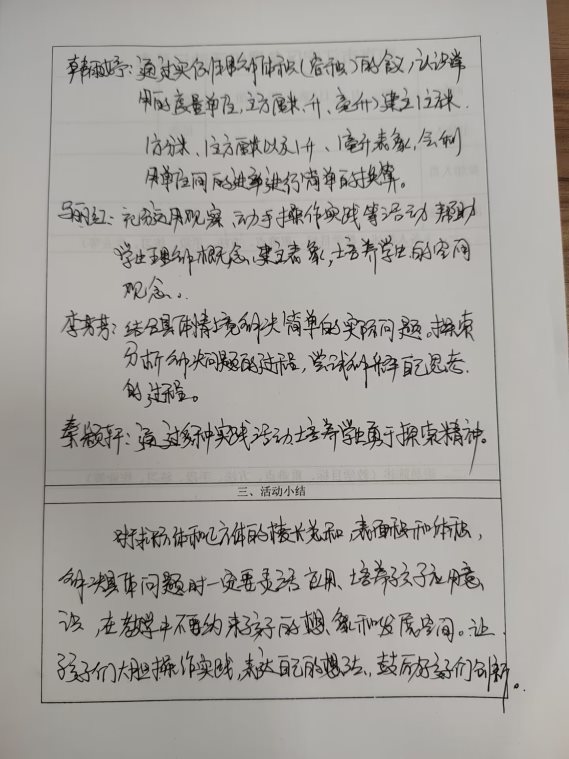 韩雨婷：通过实例理解体积（容积）的含义，认识常
用的度量单位，立方厘米、升、毫升）建立1立方米、
1方分米、1立方厘米以及1升、1毫升表象，会利
用单位间的进率进行简单的换算。
红：充分运用观察、动手操作实践等活动帮助
学生理解概念，建立表象，培养学生的空间
观念。
李芳芳：结合具体情境解决简单的实际问题。探索
分析解决问题的过程，尝试解释自己思考
的过程。
秦颖轩：通过多种实践活动培养学生勇于探索精神。
三、活动小结
对长方体和正方体的棱长总和，表面积和体积，
解决具体问题时一定要灵活应用、培养孩子应用意
识，在教学中不要约束孩子的想象和发展空间。让
孩子们大胆操作实践，表达自己的想法，鼓励孩子们创新。